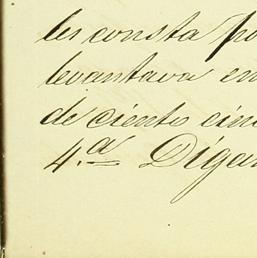 les consta po
levantava en
de ciento cin
4.a Digan